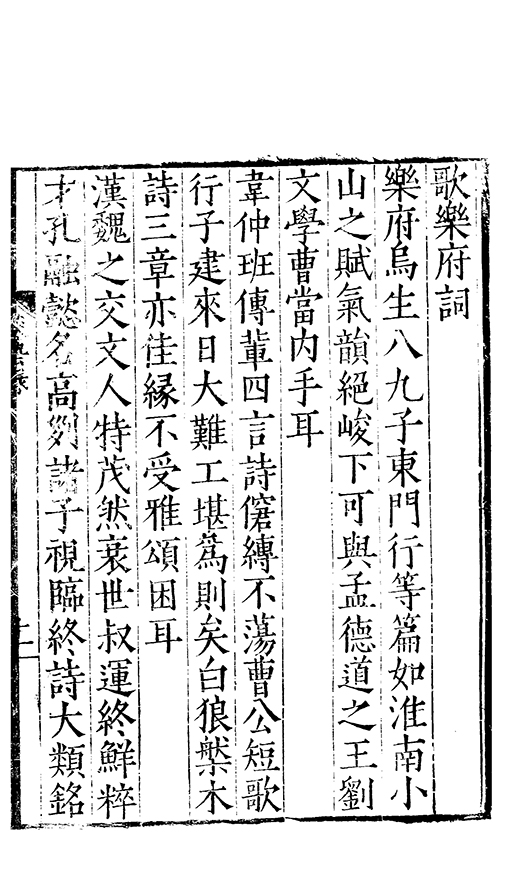 歌樂府詞
樂府烏生八九子東門行等篇如淮南小
山之賦氣韻絕峻下可與孟德道之王劉
文學曹當内手耳
韋仲班傳輩四言詩僒縛不蕩曹公短歌
行子建來日大難工堪爲則矣白狼槃木
詩三章亦佳縁不受雅頌困耳
漢魏之交文人特茂然衰世叔運終鮮粹
才孔融懿名高列諸子視臨終詩大類銘